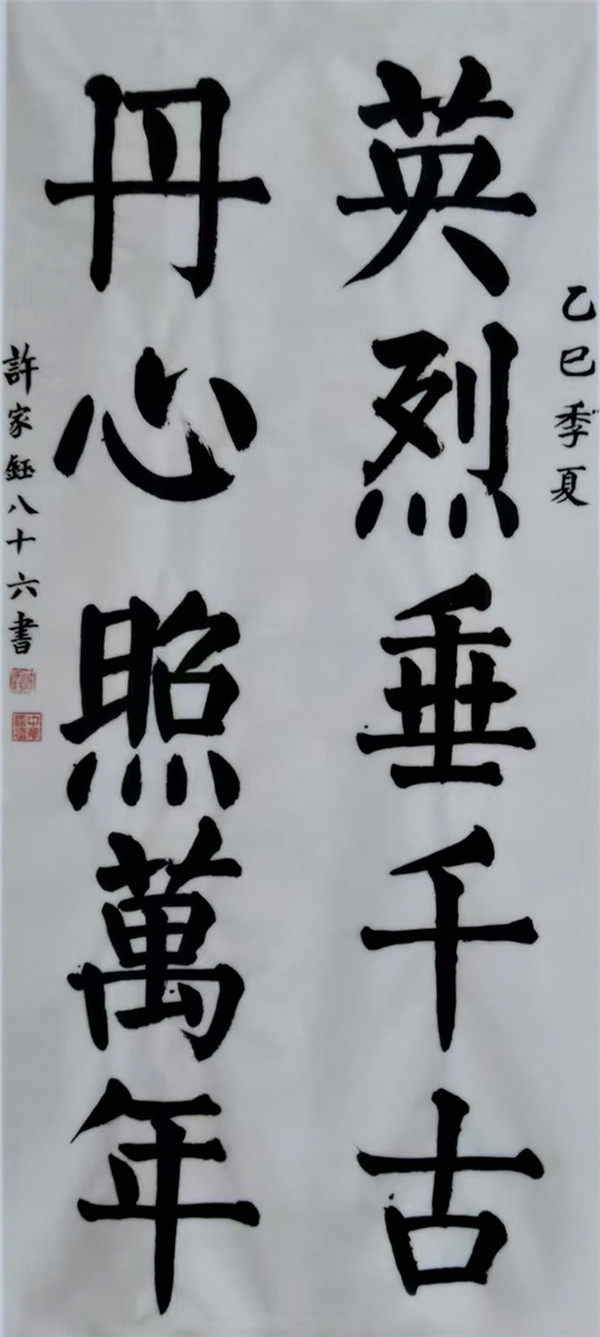 乙巳季夏
英烈垂千古
丹心照萬年
許家鈺八十六書